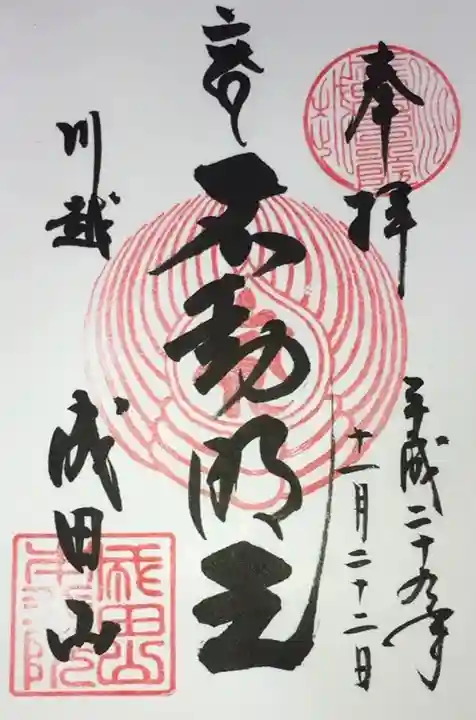 奉拝
平成二十九年
十一月二十二日
不動明王
川越
成田山
成田山
本行院